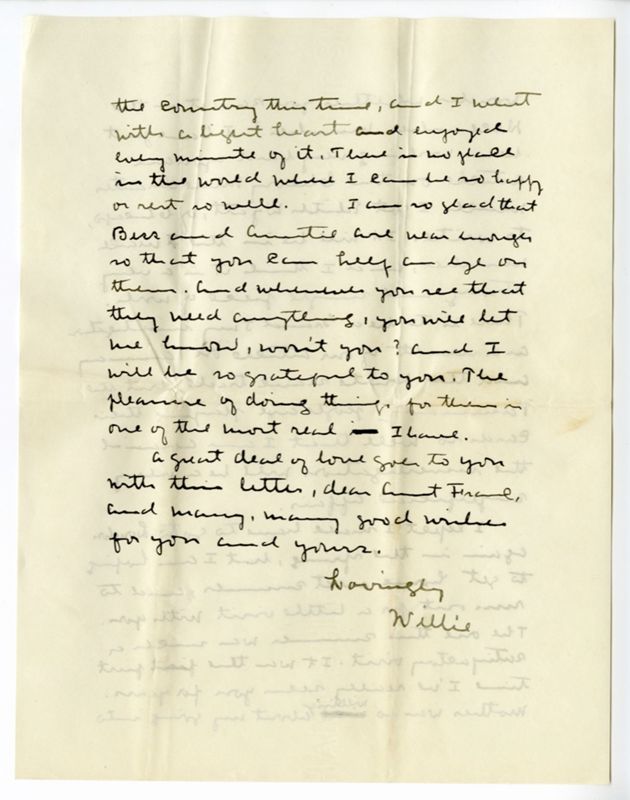 the country this time, and I went
with a light heart and enjoyed
every minute of it. There is no place
in the world where I can be so happy
or rest so well. I am so glad that
Bess and Auntie are near enough
so that you can keep an eye on
them. And whenever you see that
they need anything, you will let
me know, won't you? And I
will be so grateful to you. The
pleasure of doing things for them is
one of the most real I have.
A great deal of love goes to you
with this letter, dear Aunt
and many, many good wishes
for you and yours.
Lovingly
Willie